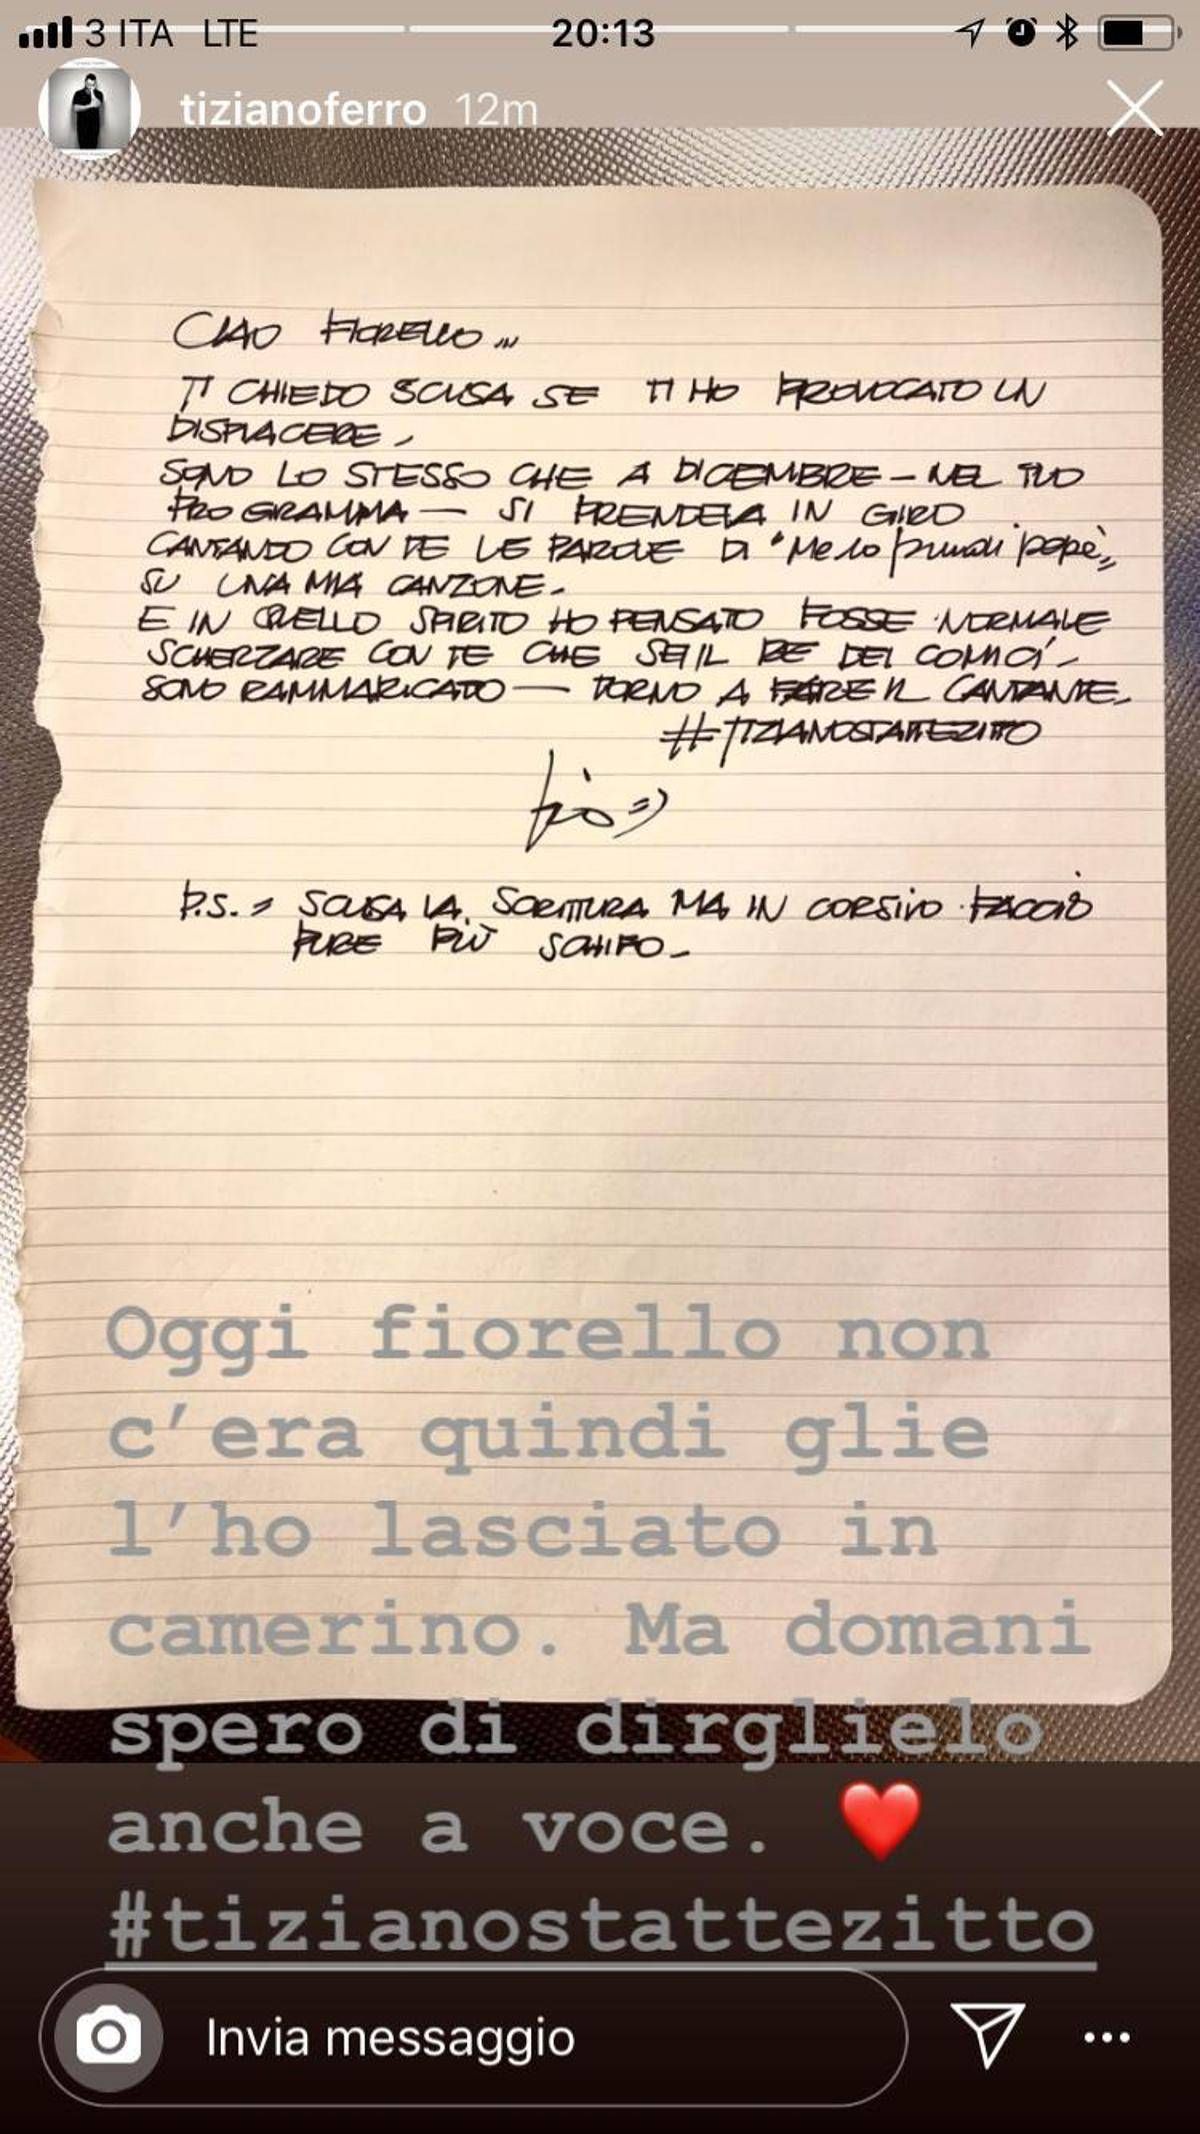 3 ITA LTE 20:13
tizianoferro 12m
CIAO FIORELLO...
TI CHIEDO SCUSA SE TI HO PROVOCATO UN
DISPIACERE.
SONO LO STESSO CHE A DICEMBRE - NEL TUO
PROGRAMMA - SI PRENDEVA IN GIRO
CANTANDO CON TE LE PAROLE DI "Me lo prendi papè"
SU UNA MIA CANZONE.
E IN QUELLO SPIRITO HO PENSATO FOSSE NORMALE
SCHERZARE CON TE CHE SEI IL RE DEI COMICI.
SONO RAMMARICATO - TORNO A FARE IL CANTANTE.
#TIZIANOSTATTEZITTO
P.S. = SCUSA LA SCRITTURA MA IN CORSIVO FACCIO
PURE PIÙ SCHIFO.
Oggi fiorello non
c'era quindi glie
l'ho lasciato in
camerino. Ma domani
spero di dirglielo
anche a voce. ❤️
#tizianostattezitto
Invia messaggio